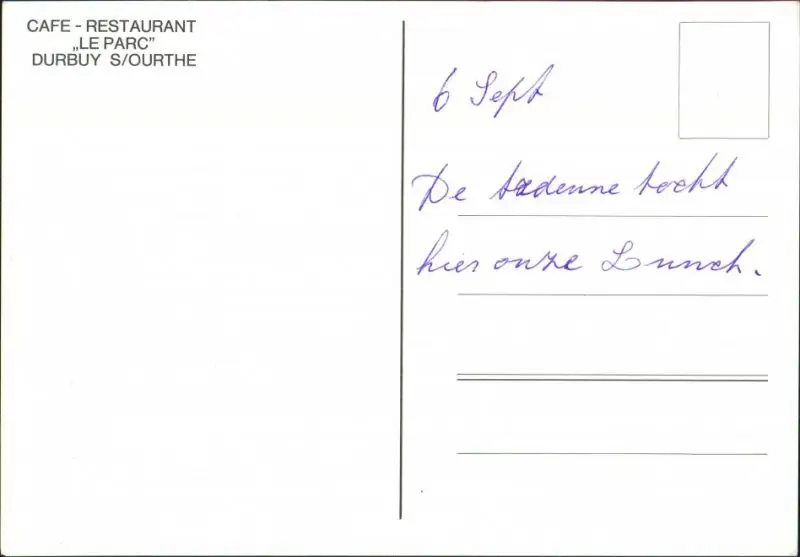 CAFE - RESTAURANT
„LE PARC"
DURBUY S/OURTHE
6 Sept
De tocht
hier onze Lunch.